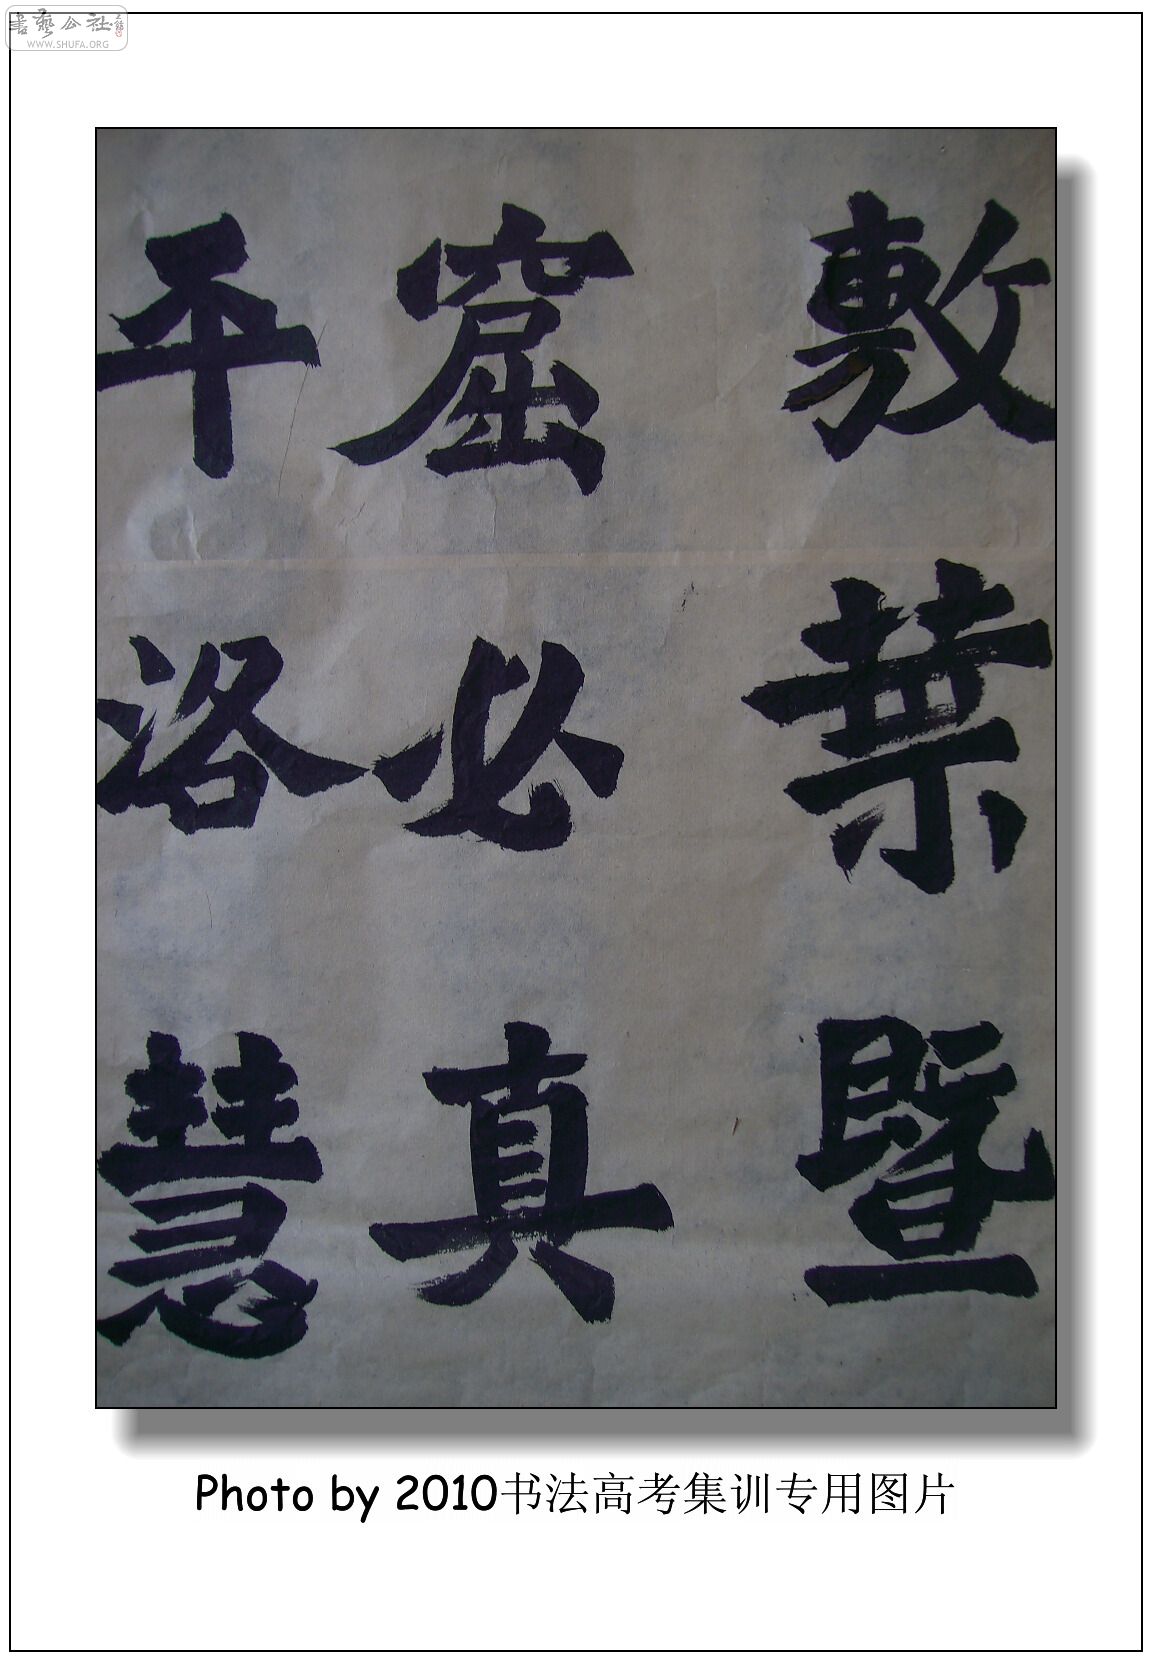 書藝公社
WWW.SHUFA.ORG
敷葉暨
窟必真
平洛慧
Photo by 2010书法高考集训专用图片